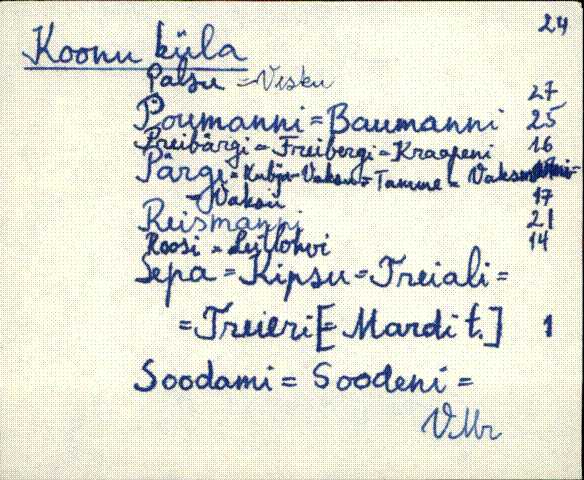 24
Koonu küla
Palsu = Visku 27
Poumanni = Baumanni 25
Preibärgi = Freibergi = Kraapeni 16
Pärgi = Kubja-Vaksu = Tamme = 
= Vaksu 17
Reismanni 21
Roosi = Leilohvi 14
Sepa = Kipsu = Treiali =
= Treieri [= Mardi t.] 1
Soodami = Soodeni =
VMr